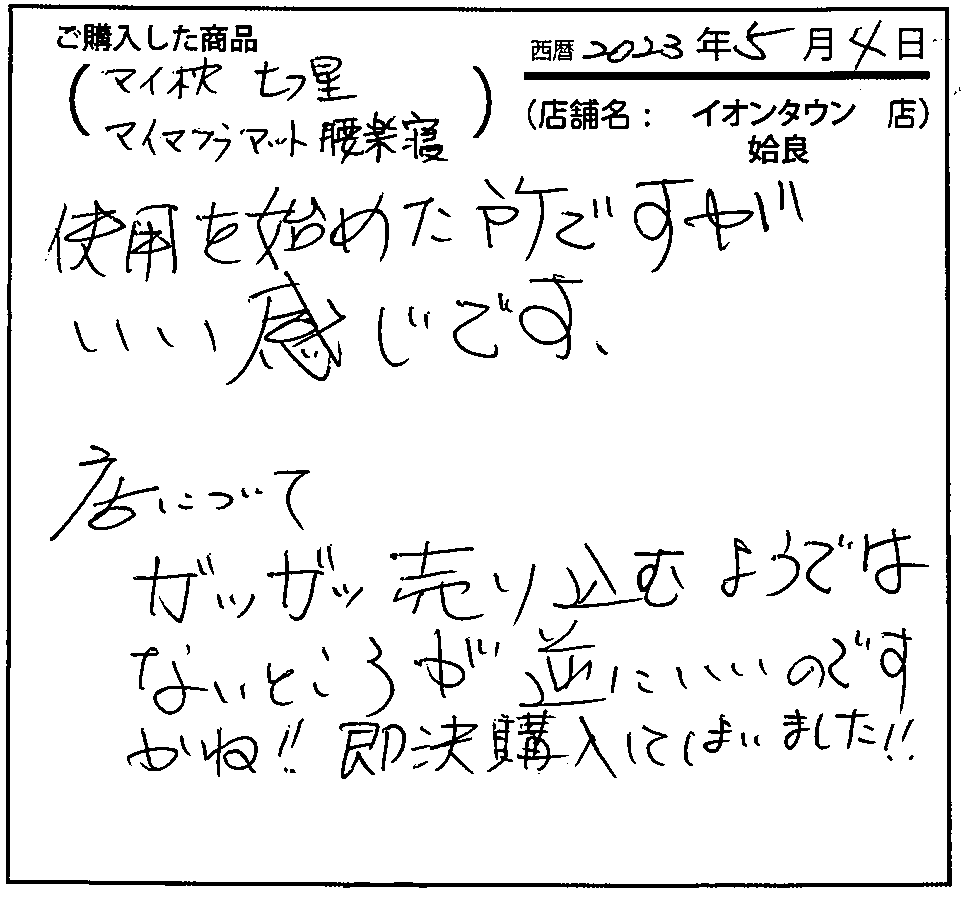 ご購入した商品
西暦 2023 年 5 月 4 日
(マイ枕 七つ星
マイまくらマット 腰楽寝)
(店舗名: イオンタウン 店)
姶良
使用を始めた所ですが
いい感じです、
店について
ガッガッ売り込むようでは
ないところが逆にいいのです
かね!! 即決購入してしまいました!!